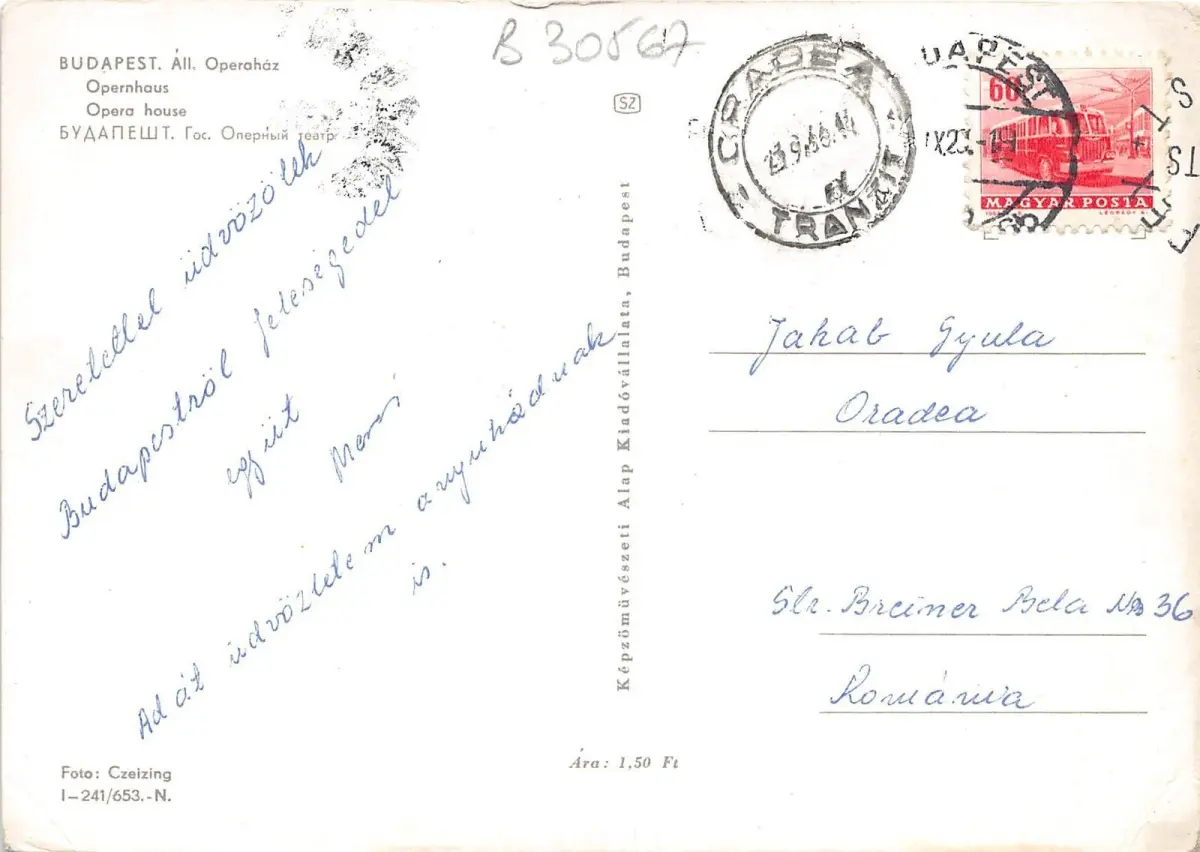 B 30567
BUDAPEST. Áll. Operaház
Opernhaus
Opera house
БУДАПЕШТ. Гос. Оперный театр
SZ
ORADEA
TRANZIT
BUDAPEST
60
MAGYAR POSTA
Szeretettel üdvözöllek
Budapestről feleségeddel
együtt
Ad át üdvözletem anyukádnak
is.
Képzőművészeti Alap Kiadóvállalata, Budapest
Jakab Gyula
Oradea
Str. Breiner Bela No 36
Románia
Foto: Czeizing
I–241/653.-N.
Ára: 1,50 Ft